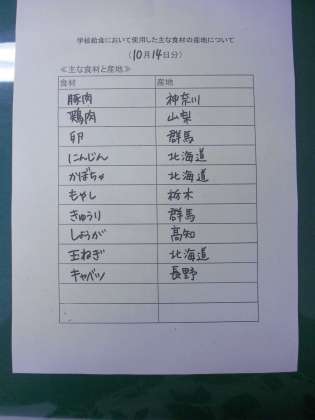 学校給食において使用した主な食材の産地について
(10月14日分)
≪主な食材と産地≫
食材 産地
豚肉 神奈川
鶏肉 山梨
卵 群馬
にんじん 北海道
かぼちゃ 北海道
もやし 栃木
きゅうり 群馬
しょうが 高知
玉ねぎ 北海道
キャベツ 長野